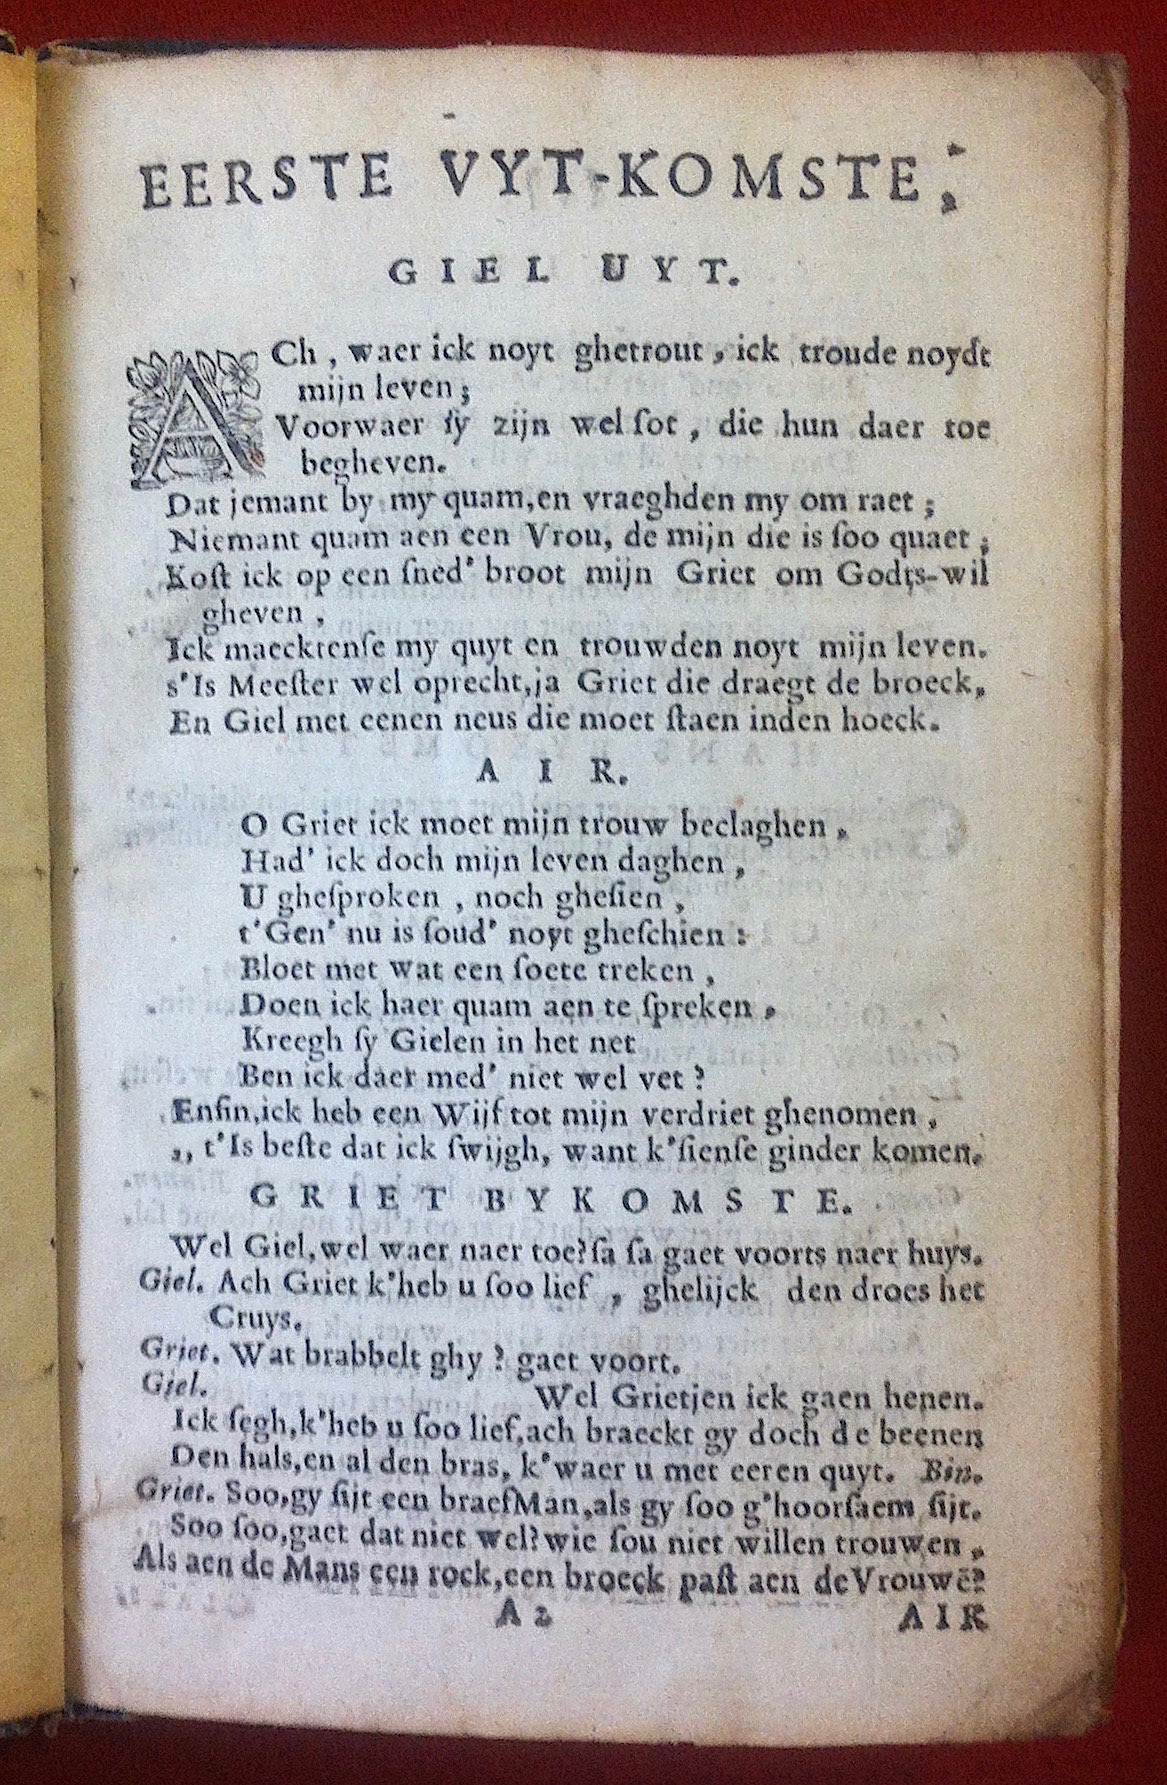 EERSTE VYT-KOMSTE,
GIEL UYT.
ACh, waer ick noyt ghetrout, ick troude noydt
mijn leven;
Voorwaer ſy zijn wel ſot, die hun daer toe
begheven.
Dat jemant by my quam, en vraeghden my om raet;
Niemant quam aen een Vrou, de mijn die is ſoo quaet;
Koſt ick op een ſned' broot mijn Griet om Godts-wil
gheven,
Ick maecktenſe my quyt en trouwden noyt mijn leven.
s'Is Meeſter wel oprecht, ja Griet die draegt de broeck,
En Giel met eenen neus die moet ſtaen inden hoeck.
AIR.
O Griet ick moet mijn trouw beclaghen,
Had' ick doch mijn leven daghen,
U gheſproken, noch gheſien,
t'Gen' nu is ſoud' noyt gheſchien:
Bloet met wat een ſoete treken,
Doen ick haer quam aen te ſpreken,
Kreegh ſy Gielen in het net
Ben ick daer med' niet wel vet?
Enfin, ick heb een Wijf tot mijn verdriet ghenomen,
,, t'Is beſte dat ick ſwijgh, want k'ſienſe ginder komen.
GRIET BYKOMSTE.
Wel Giel, wel waer naer toe? ſa ſa gaet voorts naer huys.
Giel. Ach Griet k'heb u ſoo lief, ghelijck den droes het
Cruys.
Griet. Wat brabbelt ghy? gaet voort.
Giel. Wel Grietjen ick gaen henen.
Ick ſegh, k'heb u ſoo lief, ach braeckt gy doch de beenen
Den hals, en al den bras, k'waer u met eeren quyt. Bin.
Griet. Soo, gy ſijt een braef Man, als gy ſoo g'hoorſaem ſijt.
Soo ſoo, gaet dat niet wel? wie ſou niet willen trouwen,
Als aen de Mans een rock, een broeck paſt aen de Vrouwē?
A 2 AIR